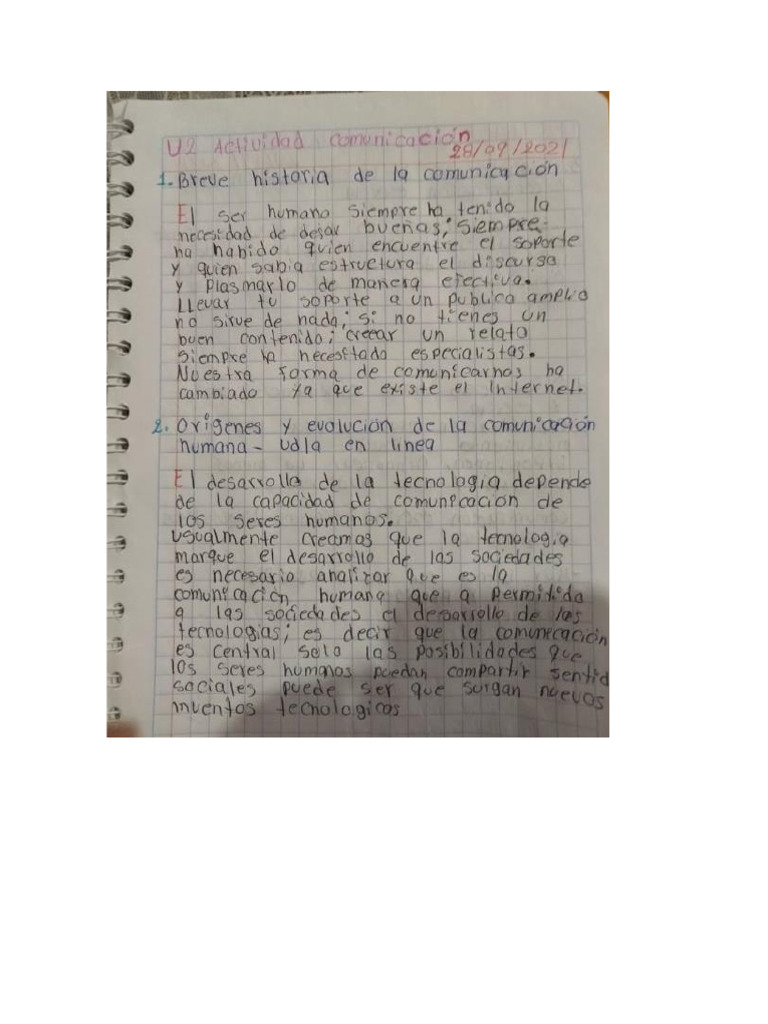 U2 Actividad comunicación
28/09/2021
1. Breve historia de la comunicación
El ser humano siempre ha tenido la
necesidad de desar bueñas; siempre
ha habido quien encuentre el soporte
y quien sabia estructura el discurso
y plasmarlo de manera efectiva.
Llevar tu soporte a un publica amplio
no sirve de nada; si no tienes un
buen contenido; creear un relato
siempre ha necesitado especialistas.
Nuestra forma de comunicarnos ha
cambiado ya que existe el Internet.
2. Orígenes y evolución de la comunicación
humana - Udla en linea
El desarrollo de la tecnologia depende
de la capacidad de comunicacion de
los seres humanos.
usualmente creamos que la tecnologia
marque el desarrollo de las sociedades
es necesario analizar que es la
comunicación humana que a permitido
a las sociedades el desarrollo de las
tecnologias; es decir que la comunicación
es central solo las posibilidades que
los seres humanos puedan compartir sentid
sociales puede ser que surgan nuevos
inventos tecnologicos